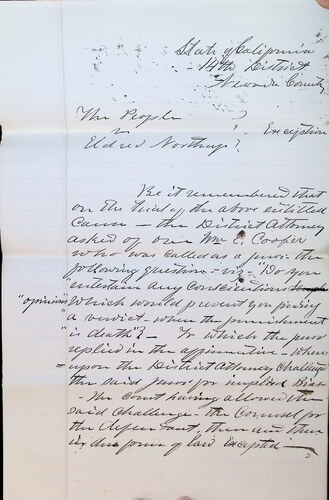 State of California
14th District
Nevada County
The People
vs
Eldred Northup
Exception
Be it remembered that
on the trial of the above entitled
Cause — the District Attorney
asked of one Wm E Cooper
who was called as a juror the
following question — viz: "Do you
entertain any Conscientious
"opinions" which would prevent you finding
a verdict when the punishment
is death"? — To which the juror
replied in the affirmative — where
upon the District Attorney Challenge
the said juror for implied Bias
— The Court having allowed the
said Challenge — the Counsel for
the defendant, then and there
in due form of law excepted —